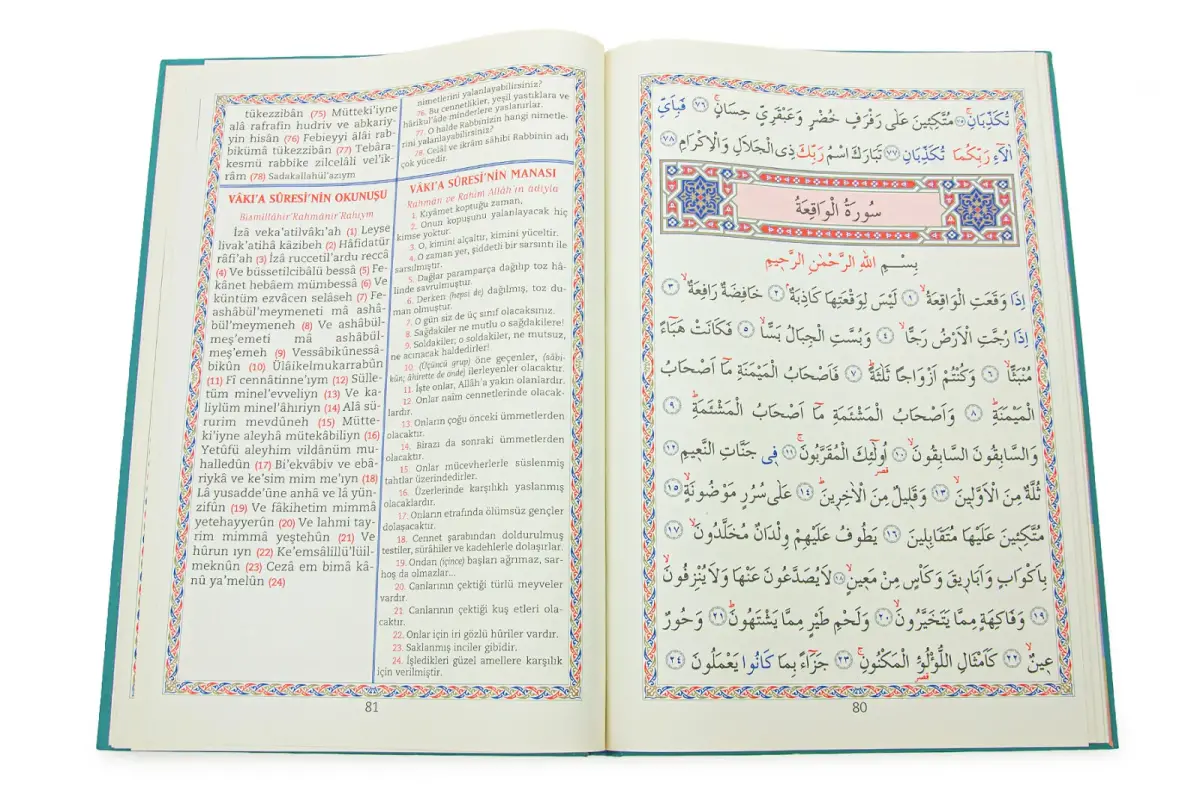 تُكَذِّبَانِ ﴿٧٥﴾ مُتَّكِئ۪ينَ عَلٰى رَفْرَفٍ خُضْرٍ وَعَبْقَرِيٍّ حِسَانٍ ﴿٧٦﴾ فَبِاَيِّ
اٰلَٓاءِ رَبِّكُمَا تُكَذِّبَانِ ﴿٧٧﴾ تَبَارَكَ اسْمُ رَبِّكَ ذِي الْجَلَالِ وَالْاِكْرَامِ ﴿٧٨﴾
سُورَةُ الْوَاقِعَةُ
بِسْمِ اللهِ الرَّحْمٰنِ الرَّح۪يمِ
اِذَا وَقَعَتِ الْوَاقِعَةُۙ ﴿١﴾ لَيْسَ لِوَقْعَتِهَا كَاذِبَةٌۢ ﴿٢﴾ خَافِضَةٌ رَافِعَةٌۙ ﴿٣﴾
اِذَا رُجَّتِ الْاَرْضُ رَجًّاۙ ﴿٤﴾ وَبُسَّتِ الْجِبَالُ بَسًّاۙ ﴿٥﴾ فَكَانَتْ هَبَٓاءً
مُنْبَثًّاۙ ﴿٦﴾ وَكُنْتُمْ اَزْوَاجًا ثَلٰثَةًۜ ﴿٧﴾ فَاَصْحَابُ الْمَيْمَنَةِ مَٓا اَصْحَابُ
الْمَيْمَنَةِۜ ﴿٨﴾ وَاَصْحَابُ الْمَشْـَٔمَةِ مَٓا اَصْحَابُ الْمَشْـَٔمَةِۜ ﴿٩﴾
وَالسَّابِقُونَ السَّابِقُونَۙ ﴿١٠﴾ اُو۬لٰٓئِكَ الْمُقَرَّبُونَۚ ﴿١١﴾ ف۪ي جَنَّاتِ النَّع۪يمِ ﴿١٢﴾
ثُلَّةٌ مِنَ الْاَوَّل۪ينَۙ ﴿١٣﴾ وَقَل۪يلٌ مِنَ الْاٰخِر۪ينَۜ ﴿١٤﴾ عَلٰى سُرُرٍ مَوْضُونَةٍۙ ﴿١٥﴾
مُتَّكِئ۪ينَ عَلَيْهَا مُتَقَابِل۪ينَ ﴿١٦﴾ يَطُوفُ عَلَيْهِمْ وِلْدَانٌ مُخَلَّدُونَۙ ﴿١٧﴾
بِاَكْوَابٍ وَاَبَار۪يقَ وَكَأْسٍ مِنْ مَع۪ينٍۙ ﴿١٨﴾ لَا يُصَدَّعُونَ عَنْهَا وَلَا يُنْزِفُونَۙ
﴿١٩﴾ وَفَاكِهَةٍ مِمَّا يَتَخَيَّرُونَۙ ﴿٢٠﴾ وَلَحْمِ طَيْرٍ مِمَّا يَشْتَهُونَۜ ﴿٢١﴾ وَحُورٌ
ع۪ينٌۙ ﴿٢٢﴾ كَاَمْثَالِ اللُّؤْلُؤِ الْمَكْنُونِۚ ﴿٢٣﴾ جَزَٓاءً بِمَا كَانُوا يَعْمَلُونَ ﴿٢٤﴾
80
tükezzibân (75) Mütteki'iyne
alâ rafrafin hudriv ve abkariy-
yin hisân (76) Febieyyi âlâi rab-
bikümâ tükezzibân (77) Tebâra-
kesmü rabbike zilcelâli vel'ik-
râm (78) Sadakallahül'azıym
VÂKI'A SÛRESİ'NİN OKUNUŞU
Bismillâhir'Rahmânir'Rahıym
İzâ veka'atilvâkı'ah (1) Leyse
livak'atihâ kâzibeh (2) Hâfidatür
râfi'ah (3) İzâ ruccetil'ardu reccâ
(4) Ve büssetilcibâlü bessâ (5) Fe-
kânet hebâem mümbessâ (6) Ve
küntüm ezvâcen selâseh (7) Fe-
ashâbül'meymeneti mâ ashâ-
bül'meymeneh (8) Ve ashâbül-
meş'emeti mâ ashâbül-
meş'emeh (9) Vessâbikûnessâ-
bikûn (10) Ülâikelmukarrabûn
(11) Fî cennâtinne'ıym (12) Sülle-
tüm minel'evveliyn (13) Ve ka-
liylüm minel'âhıriyn (14) Alâ sü-
rurim mevdûneh (15) Mütte-
ki'iyne aleyhâ mütekâbiliyn (16)
Yetûfü aleyhim vildânüm mu-
halledûn (17) Bi'ekvâbiv ve ebâ-
riykâ ve ke'sim mim me'ıyn (18)
Lâ yusadde'ûne anhâ ve lâ yün-
zifûn (19) Ve fâkihetim mimmâ
yetehayyerûn (20) Ve lahmi tay-
rim mimmâ yeştehûn (21) Ve
hûrun ıyn (22) Ke'emsâlillü'lüil-
meknûn (23) Cezâ em bimâ kâ-
nû ya'melûn (24)
nimetlerini yalanlayabilirsiniz?
76. Bu cennetlikler, yeşil yastıklara ve
hârikul'âde minderlere yaslanırlar.
77. O halde Rabbinizin hangi nimetle-
rini yalanlayabilirsiniz?
78. Celâl ve ikrâm sâhibi Rabbinin adı
çok yücedir.
VÂKI'A SÛRESİ'NİN MANASI
Rahmân ve Rahim Allâh'ın adıyla
1. Kıyâmet koptuğu zaman,
2. Onun kopuşunu yalanlayacak hiç
kimse yoktur.
3. O, kimini alçaltır, kimini yüceltir.
4. O zaman yer, şiddetli bir sarsıntı ile
sarsılmıştır.
5. Dağlar paramparça dağılıp toz hâ-
linde savrulmuştur.
6. Derken (hepsi de) dağılmış, toz du-
man olmuştur.
7. O gün siz de üç sınıf olacaksınız.
8. Sağdakiler ne mutlu o sağdakilere!
9. Soldakiler, o soldakiler, ne mutsuz,
ne acınacak haldedirler!
10. (Üçüncü grup) öne geçenler, (sâbi-
kûn; âhirette de önde) ilerleyenler olacaktır.
11. İşte onlar, Allâh'a yakın olanlardır.
12. Onlar naîm cennetlerinde olacak-
lardır.
13. Onların çoğu önceki ümmetlerden
olacaktır.
14. Birazı da sonraki ümmetlerden
olacaktır.
15. Onlar mücevherlerle süslenmiş
tahtlar üzerindedirler.
16. Üzerlerinde karşılıklı yaslanmış
olacaklardır.
17. Onların etrafında ölümsüz gençler
dolaşacaktır.
18. Cennet şarabından doldurulmuş
testiler, sürâhiler ve kadehlerle dolaşırlar.
19. Ondan (içince) başları ağrımaz, sar-
hoş da olmazlar...
20. Canlarının çektiği türlü meyveler
vardır.
21. Canlarının çektiği kuş etleri ola-
caktır.
22. Onlar için iri gözlü hûriler vardır.
23. Saklanmış inciler gibidir.
24. İşledikleri güzel amellere karşılık
için verilmiştir.
81